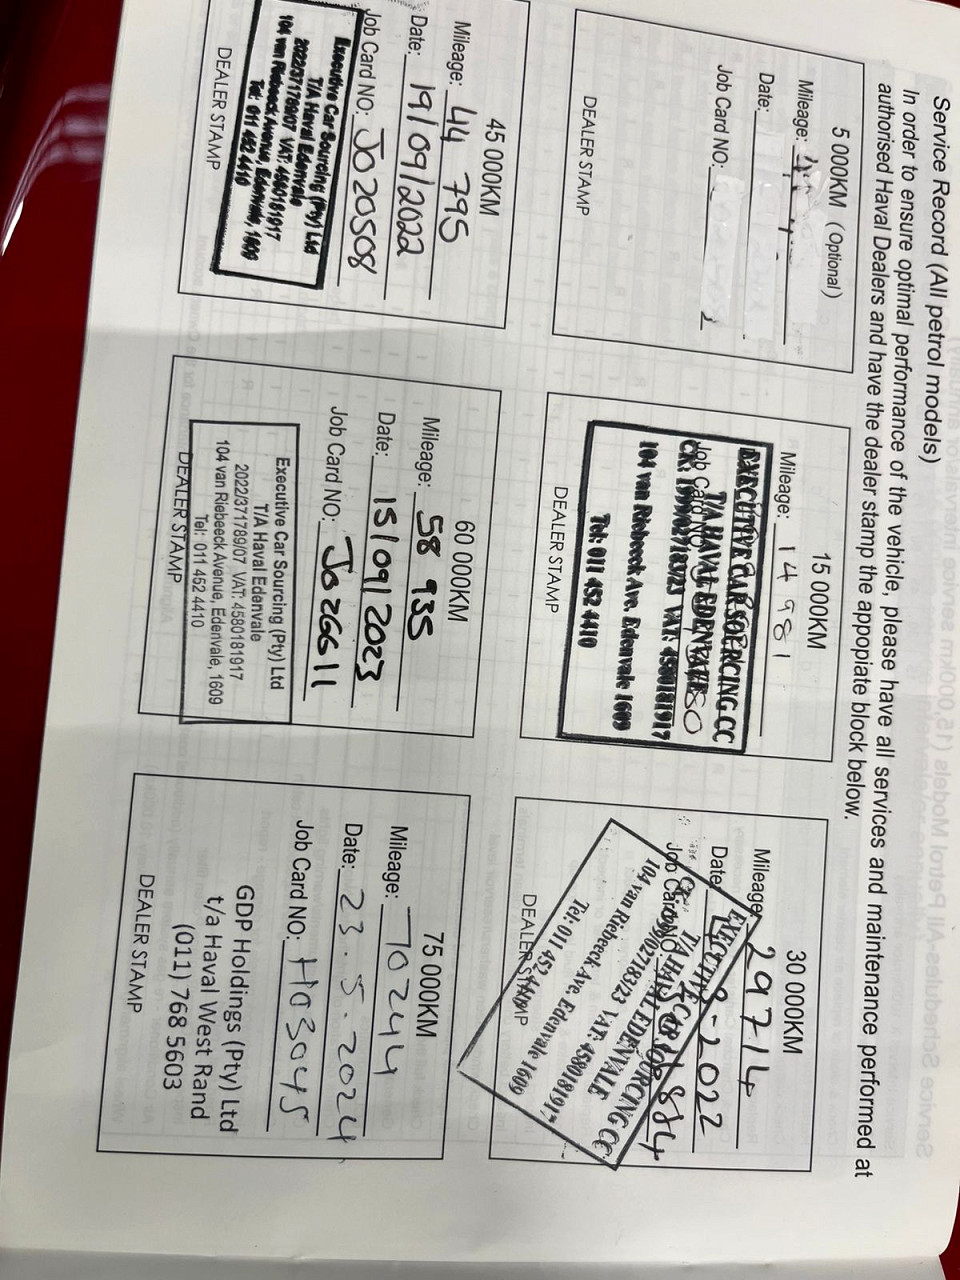 Service Record (All petrol models)
In order to ensure optimal performance of the vehicle, please have all services and maintenance performed at
authorised Haval Dealers and have the dealer stamp the appopiate block below.
5 000KM (Optional)
Mileage:
Date:
Job Card NO:
DEALER STAMP
15 000KM
Mileage: 14 981
EXECUTIVE CAR SOURCING CC
T/A HAVAL EDENVALE
Job Card NO:
VAT: 4580181917
104 van Riebeeck Ave. Edenvale 1609
Tel: 011 452 4410
DEALER STAMP
30 000KM
Mileage: 29714
Date: 2022
Job Card NO:
EXECUTIVE CAR SOURCING CC
T/A HAVAL EDENVALE
VAT: 4580181917
104 van Riebeeck Ave. Edenvale 1609
Tel: 011 452
DEALER STAMP
45 000KM
Mileage: 44 795
Date: 19/09/2022
Job Card NO: J020508
Executive Car Sourcing (Pty) Ltd
T/A Haval Edenvale
2022/371789/07 VAT: 4580181917
104 van Riebeeck Avenue, Edenvale, 1609
Tel: 011 452 4410
DEALER STAMP
60 000KM
Mileage: 58 935
Date: 15/09/2023
Job Card NO: J026611
Executive Car Sourcing (Pty) Ltd
T/A Haval Edenvale
2022/371789/07 VAT: 4580181917
104 van Riebeeck Avenue, Edenvale, 1609
Tel: 011 452 4410
DEALER STAMP
75 000KM
Mileage: 70244
Date: 23.5.2024
Job Card NO: H03045
GDP Holdings (Pty) Ltd
t/a Haval West Rand
(011) 768 5603
DEALER STAMP